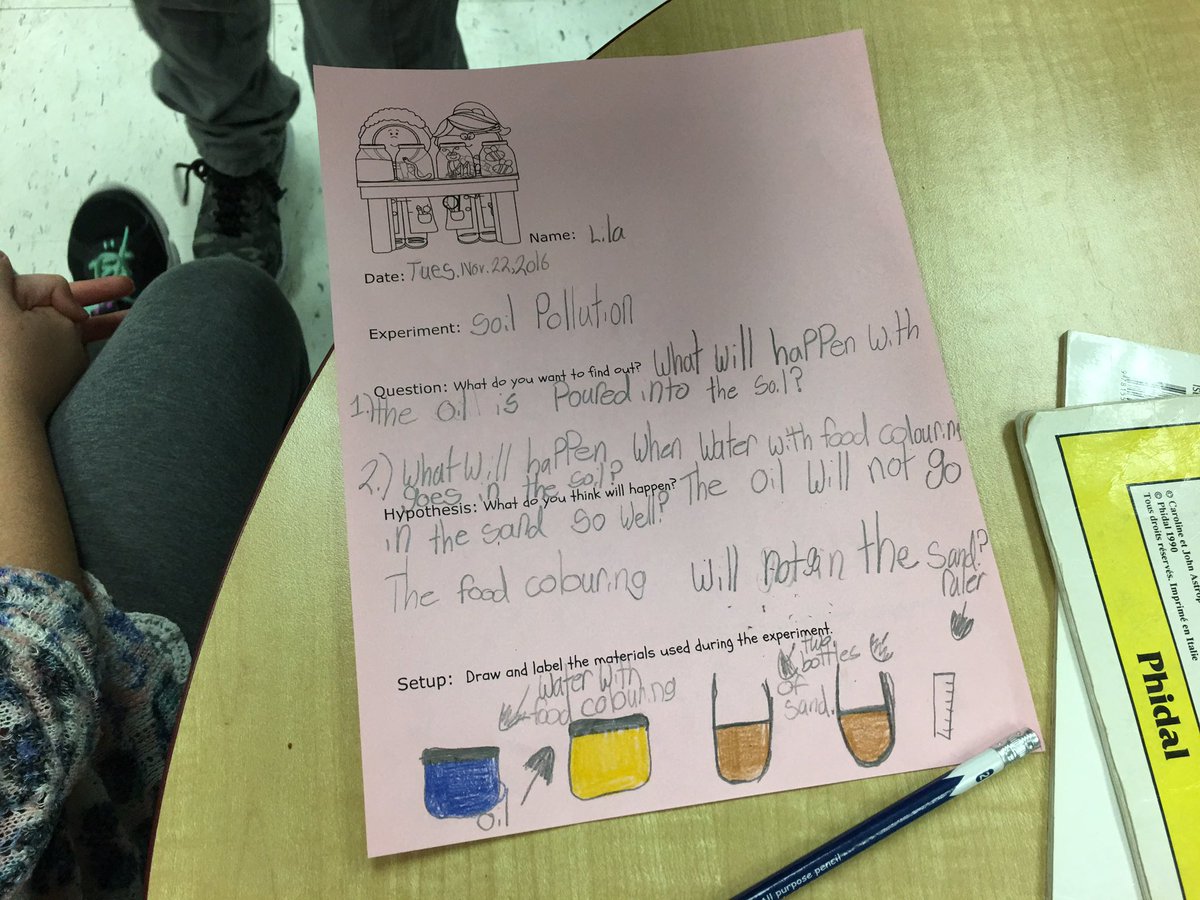 Name: Lila
Date: Tues. Nov. 22, 2016
Experiment: Soil Pollution
Question: What do you want to find out? What will happen with
1.) the oil is Poured into the soil?
2.) What will happen when water with food colouring
goes in the soil?
Hypothesis: What do you think will happen? The oil will not go
in the sand so well?
The food colouring will not in the sand?
ruler
Setup: Draw and label the materials used during the experiment.
water with
food colouring
two
bottles
of
sand.
oil
All purpose pencil
2
© Caroline et John Astrop
© Phidal 1990
Tous droits réservés. Imprimé en Italie
Phidal